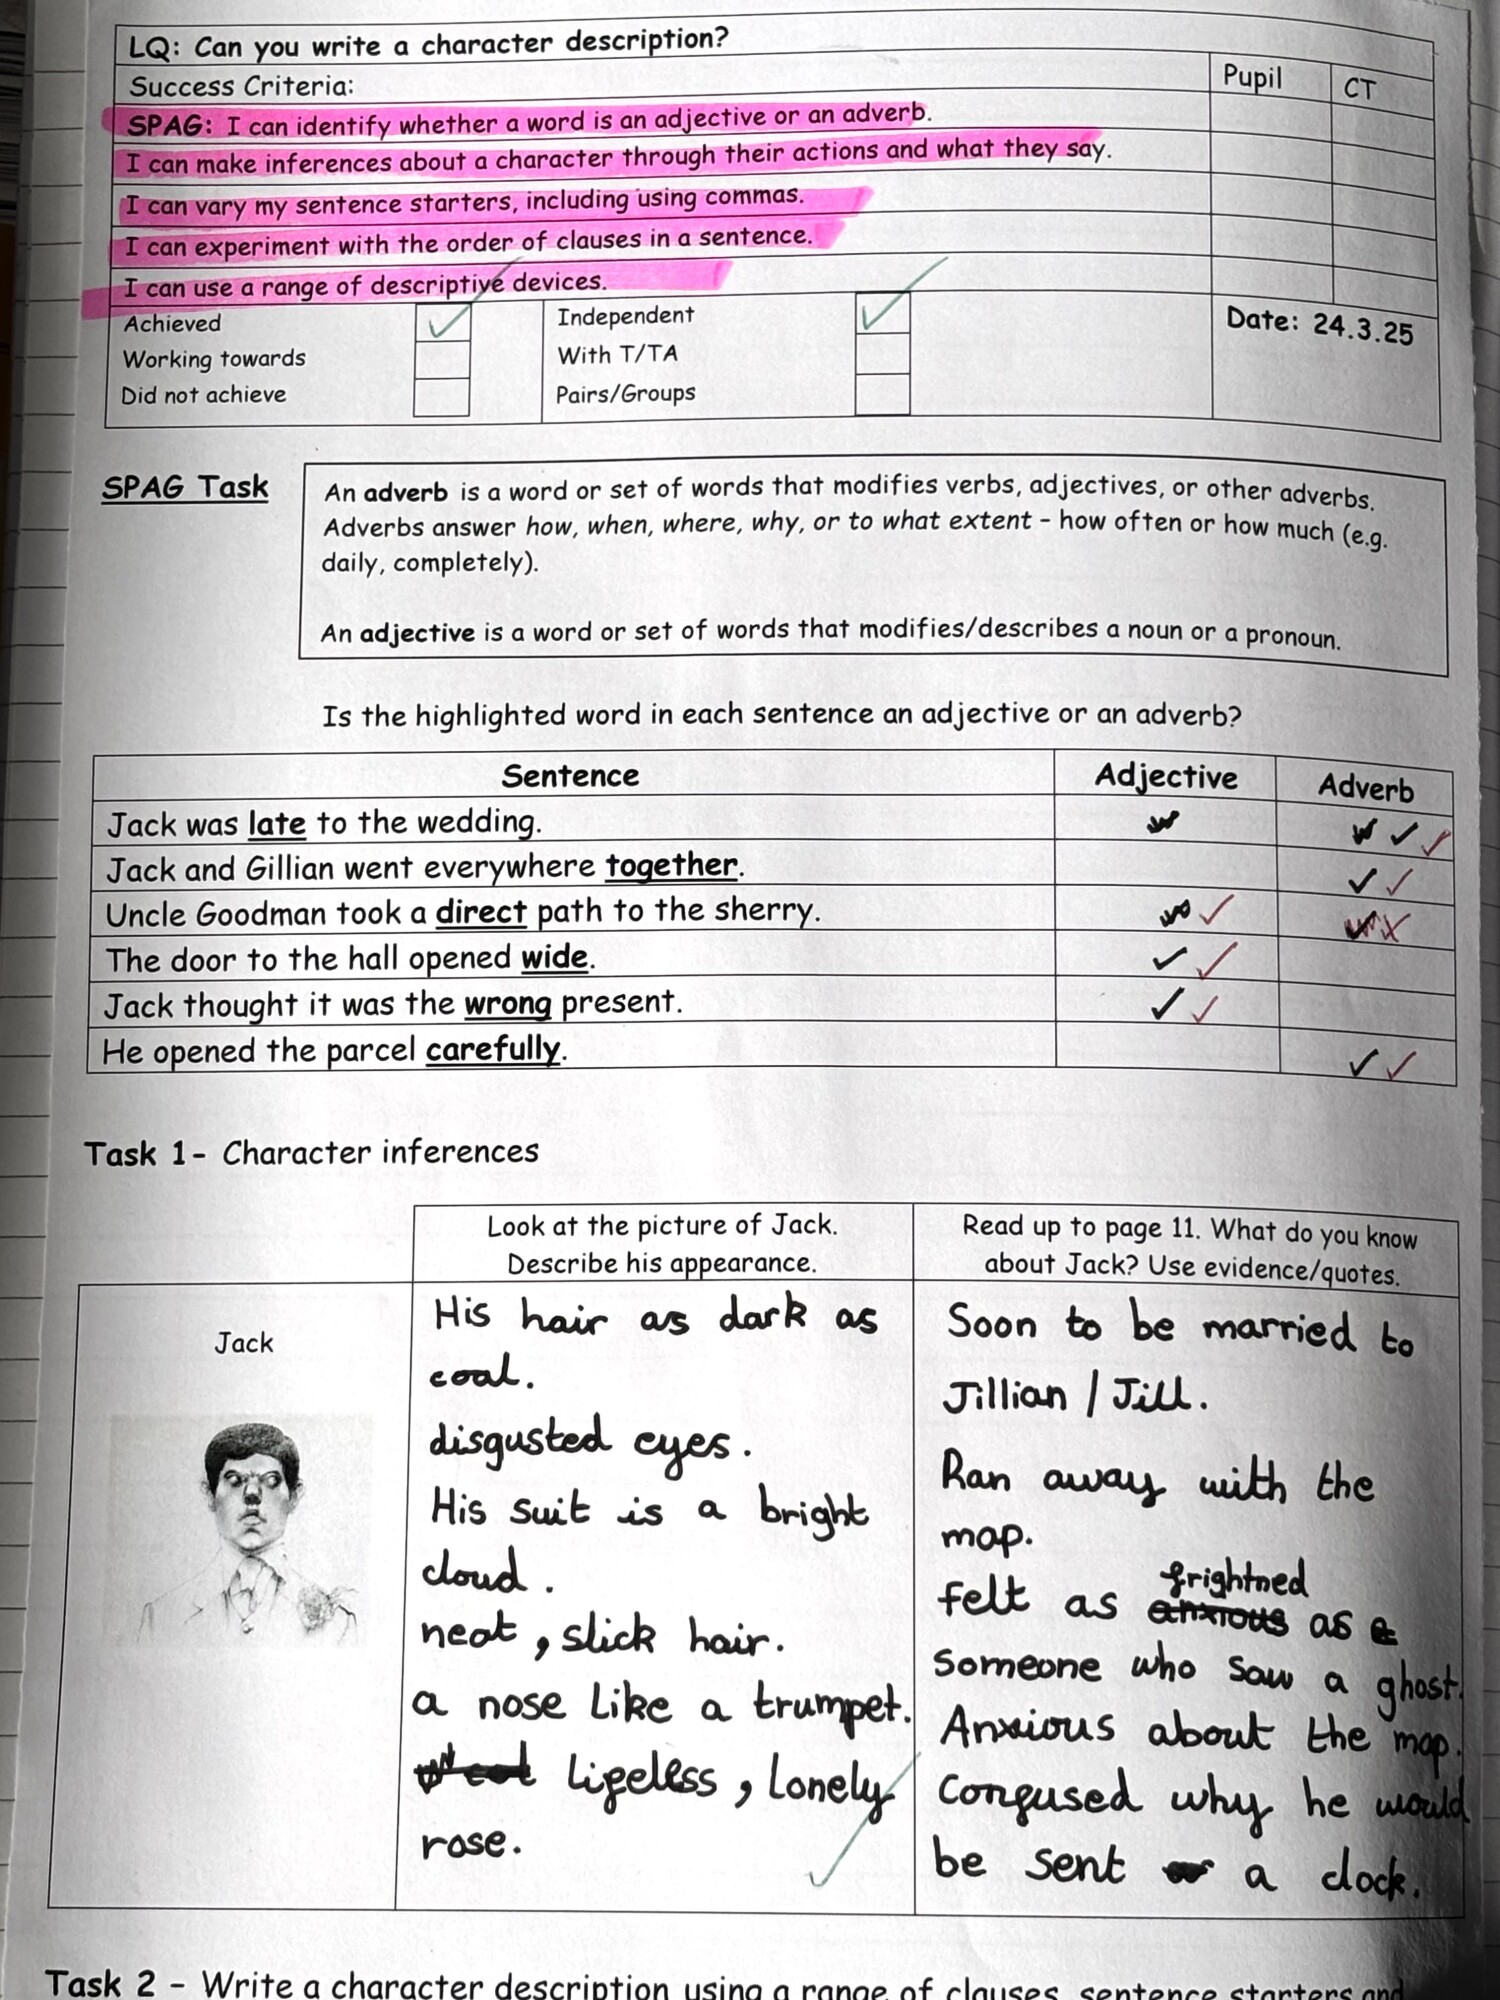 LQ: Can you write a character description?
Success Criteria:
Pupil
CT
SPAG: I can identify whether a word is an adjective or an adverb.
I can make inferences about a character through their actions and what they say.
I can vary my sentence starters, including using commas.
I can experiment with the order of clauses in a sentence.
I can use a range of descriptive devices.
Achieved
Independent
Date: 24.3.25
Working towards
With T/TA
Did not achieve
Pairs/Groups
SPAG Task
An adverb is a word or set of words that modifies verbs, adjectives, or other adverbs.
Adverbs answer how, when, where, why, or to what extent – how often or how much (e.g.
daily, completely).
An adjective is a word or set of words that modifies/describes a noun or a pronoun.
Is the highlighted word in each sentence an adjective or an adverb?
Sentence Adjective Adverb
Jack was late to the wedding.
Jack and Gillian went everywhere together.
Uncle Goodman took a direct path to the sherry.
The door to the hall opened wide.
Jack thought it was the wrong present.
He opened the parcel carefully.
Task 1- Character inferences
Look at the picture of Jack.
Describe his appearance.
Read up to page 11. What do you know
about Jack? Use evidence/quotes.
Jack
His hair as dark as
coal.
disgusted eyes.
His suit is a bright
cloud.
neat, slick hair.
a nose like a trumpet.
lifeless, lonely
rose.
Soon to be married to
Jillian / Jill.
Ran away with the
map.
frightned
felt as anxious as a
someone who saw a ghost.
Anxious about the map.
Confused why he would
be sent a clock.
Task 2 - Write a character description using a range of clauses, sentence starters and